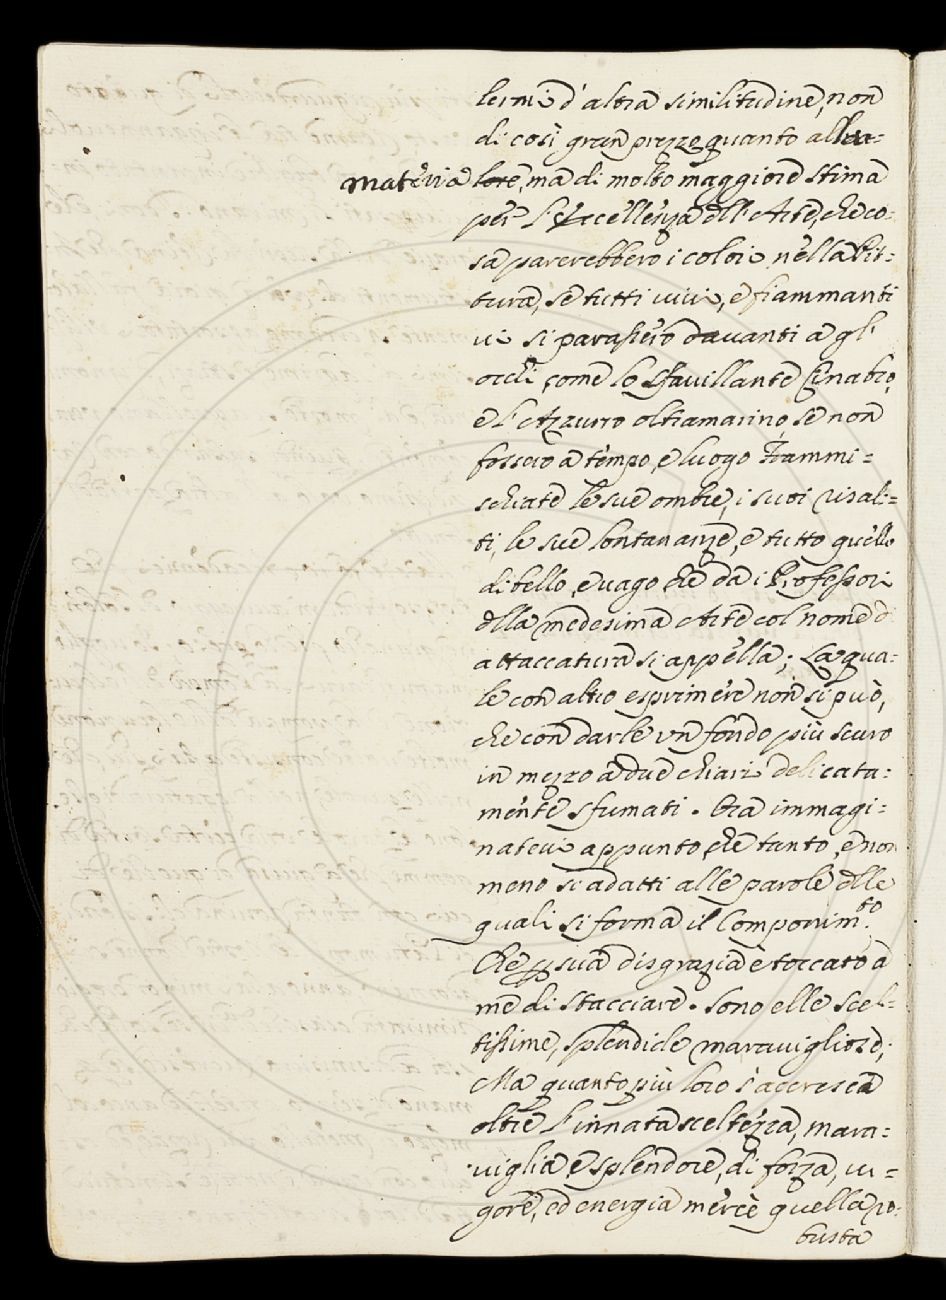 lermi d'altra similitudine, non
di così gran prezzo quanto alla
materia, ma di molto maggiore stima
per l'Eccellenza dell'Arte, che co-
sa parerebbero i colori nella Pit-
tura, se tutti vivi, e fiammanti
vi si parassero davanti a gl'
occhi, come lo sfavillante Cinabro,
e l'Azzurro oltramarino, se non
fossero a tempo, e luogo frammi-
schiate le sue ombre, i suoi risal-
ti, le sue lontananze, e tutto quello
di bello, e vago che da i Professori
della medesima Arte col nome d
attaccatura si appella; La qua-
le con altro esprimere non si può,
che con darle un fondo più scuro
in mezzo a due chiari delicata-
mente sfumati. Ora immagi-
natevi appunto, che tanto, e non
meno si adatti alle parole delle
quali si forma il Componim.to
Che p sua disgrazia è toccato a
me di stacciare. Sono elle scel-
tissime, splendide maravigliose;
Ma quanto più loro s'accresca
oltre l'innata sceltezza, mara-
viglia e splendore, di forza, vi-
gore, ed energia mercè quella ro-
busta